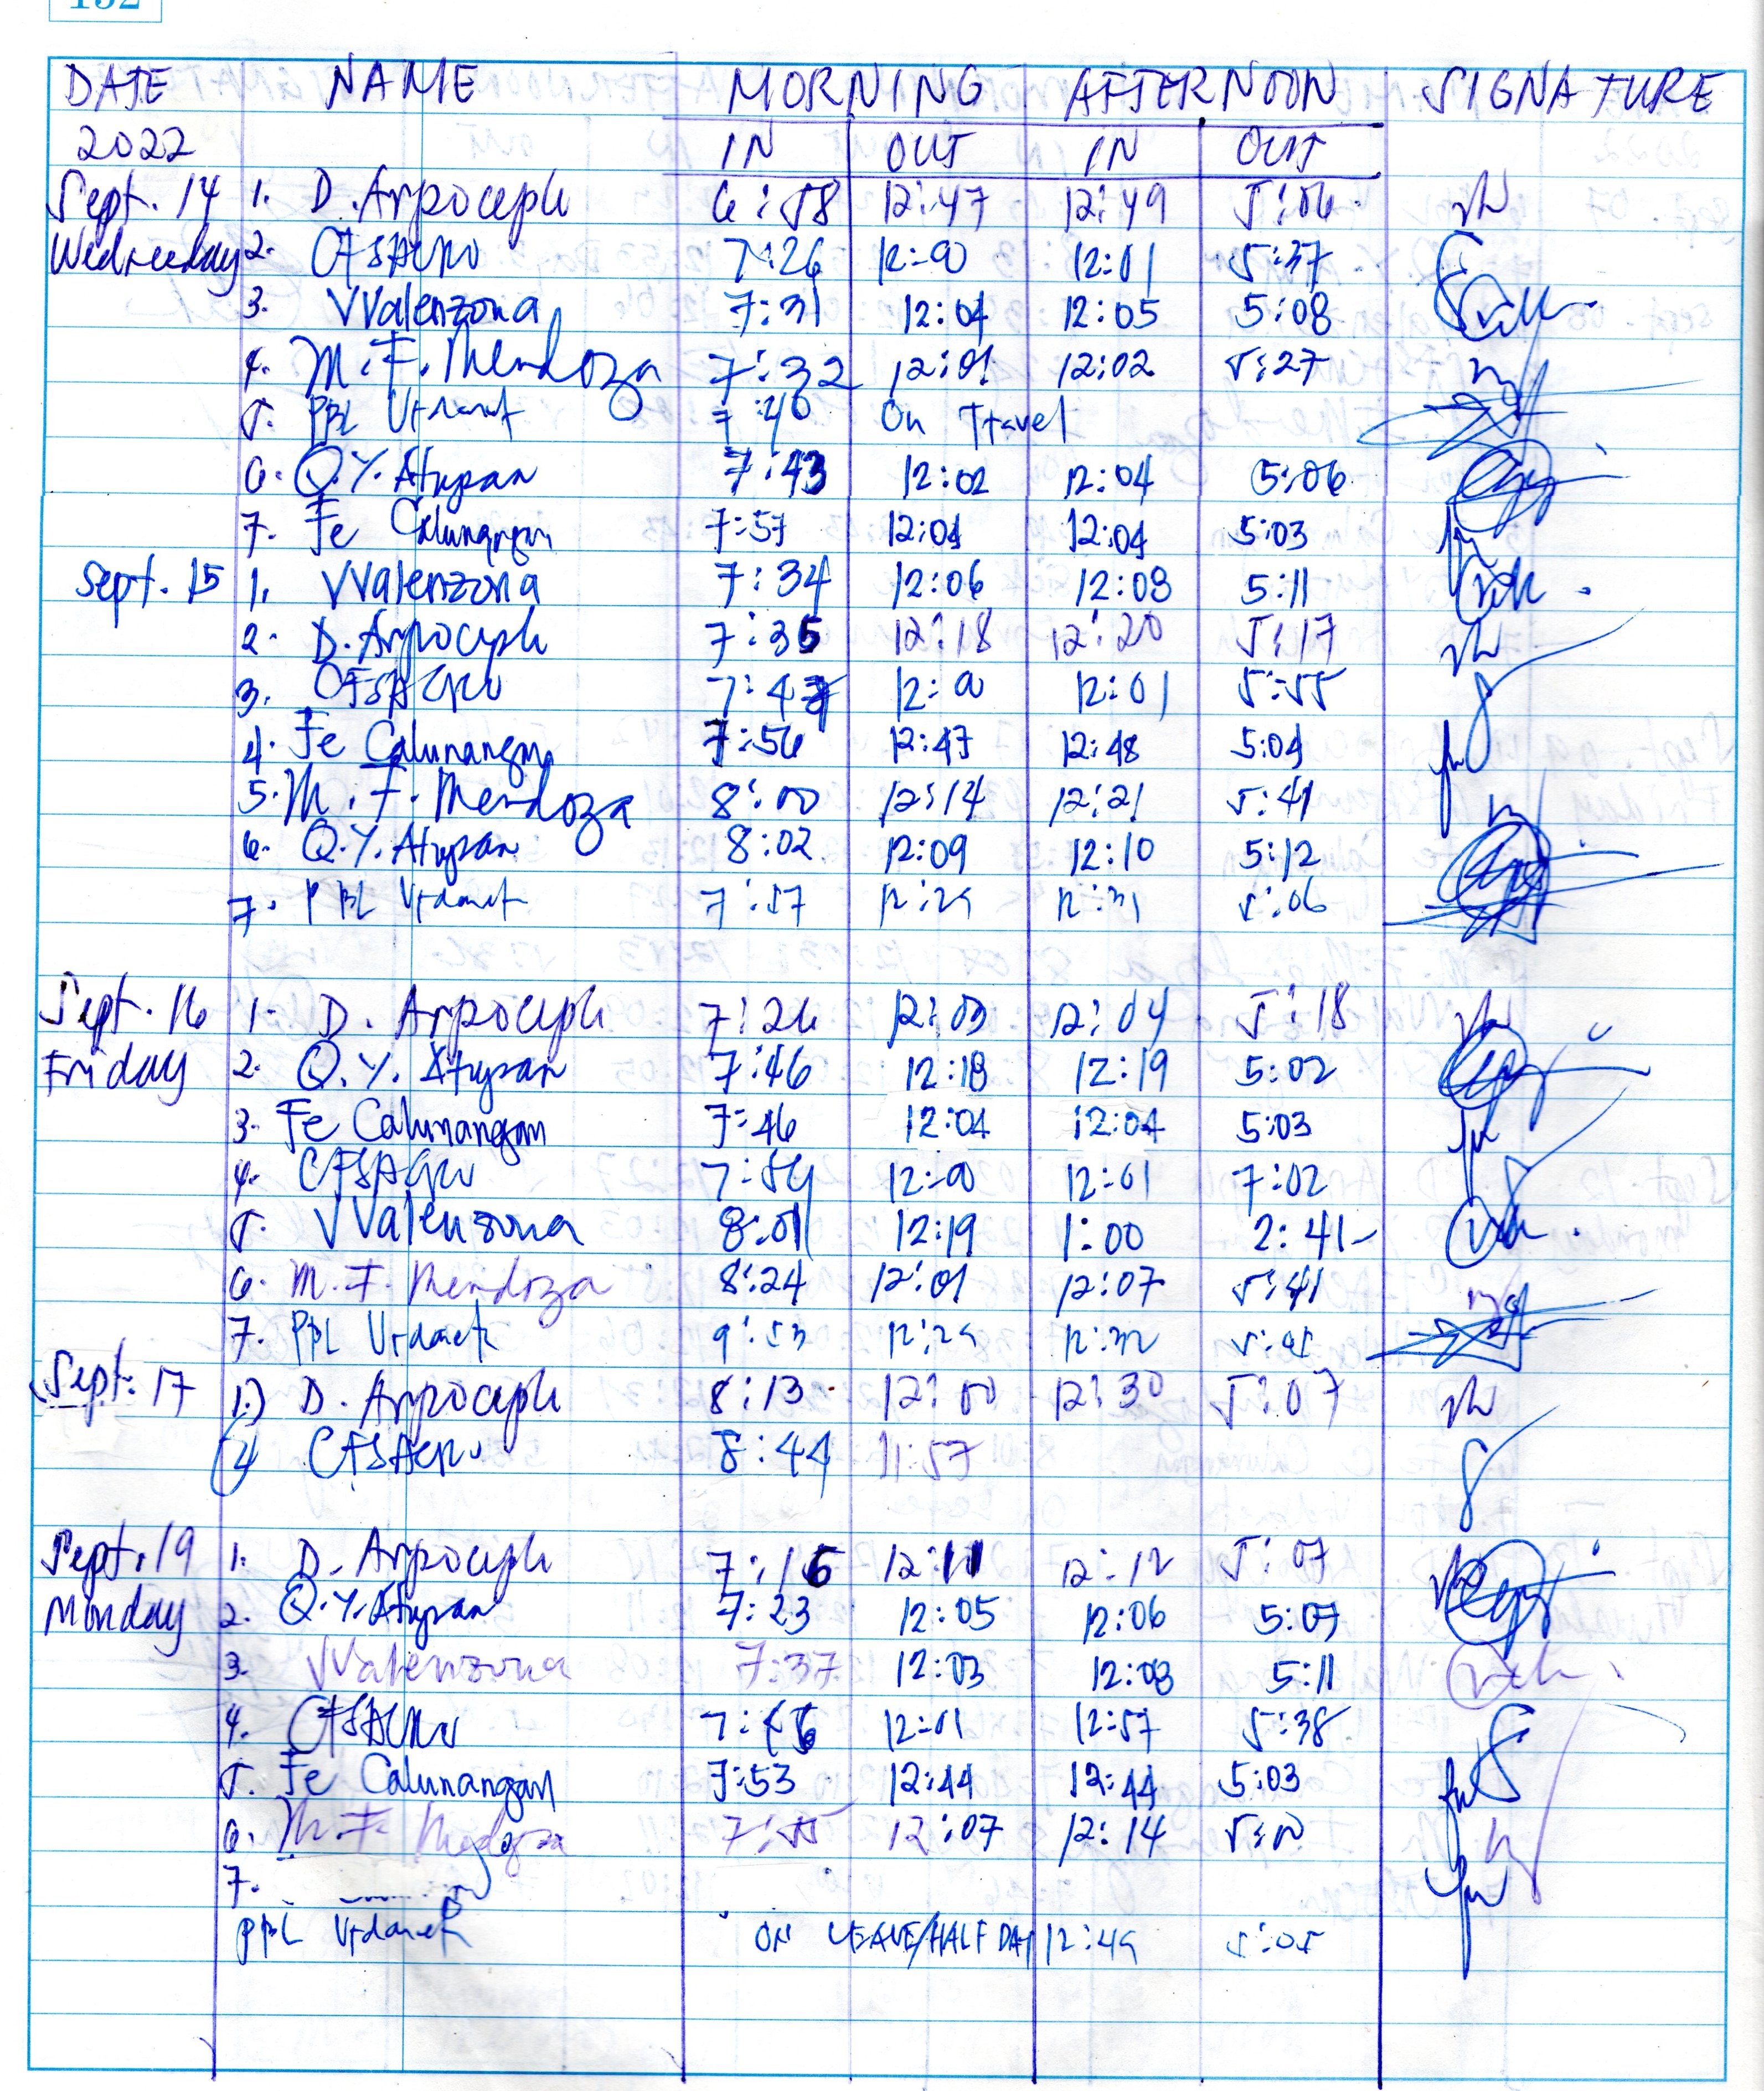 132
DATE NAME MORNING AFTERNOON SIGNATURE
2022 IN OUT IN OUT
Sept. 14 1. D. Arpoceph 6:58 12:47 12:49 5:06
Wednesday 2. 7:26 12:00 12:01 5:37
3. VValenzona 7:31 12:04 12:05 5:08
4. M. F. Mendoza 7:32 12:01 12:02 5:27
5. PBL Urdaneta 7:40 On Travel
6. Q.Y. Atupan 7:43 12:02 12:04 5:06
7. Fe Calunangan 7:57 12:04 12:04 5:03
Sept. 15 1. VValenzona 7:34 12:06 12:08 5:11
2. D. Arpoceph 7:35 12:18 12:20 5:17
3. 12:00 12:01 5:55
4. Fe Calunangan 7:56 12:47 12:48 5:04
5. M. F. Mendoza 8:00 12:14 12:21 5:41
6. Q.Y. Atupan 8:02 12:09 12:10 5:12
7. PBL 7:57 12:29 12:31 5:06
Sept. 16 1. D. Arpoceph 7:26 12:03 12:04 5:18
Friday 2. Q.Y. Atupan 7:46 12:18 12:19 5:02
3. Fe Calunangan 7:46 12:04 12:04 5:03
4. 7:54 12:00 12:01 7:02
5. VValenzona 8:01 12:19 1:00 2:41
6. M. F. Mendoza 8:24 12:01 12:07 5:41
7. PBL 9:53 12:29 12:32
Sept. 17 1.) D. Arpoceph 8:13 12:00 12:30 5:07
2 8:44 11:57
Sept. 19 1. D. Arpoceph 7:16 12:11 12:12 5:07
Monday 2. Q.Y. Atupan 7:23 12:05 12:06 5:07
3. VValenzona 7:37 12:03 12:08 5:11
4. 12:01 12:57 5:38
5. Fe Calunangan 7:53 12:44 12:44 5:03
6. M. F. Mendoza 7:55 12:07 12:14
7.
PBL ON LEAVE/HALF DAY 12:49 5:05